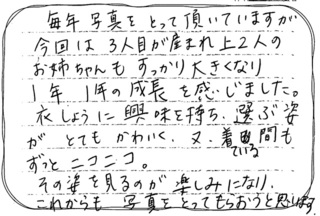 毎年写真をとって頂いていますが
今回は3人目が産まれ上2人の
お姉ちゃんもすっかり大きくなり
1年1年の成長を感じました。
衣しょうに興味を持ち、選ぶ姿
がとてもかわいく、又、着ている間も
ずっとニコニコ。
その姿を見るのが楽しみになり、
これからも写真をとってもらおうと思います。